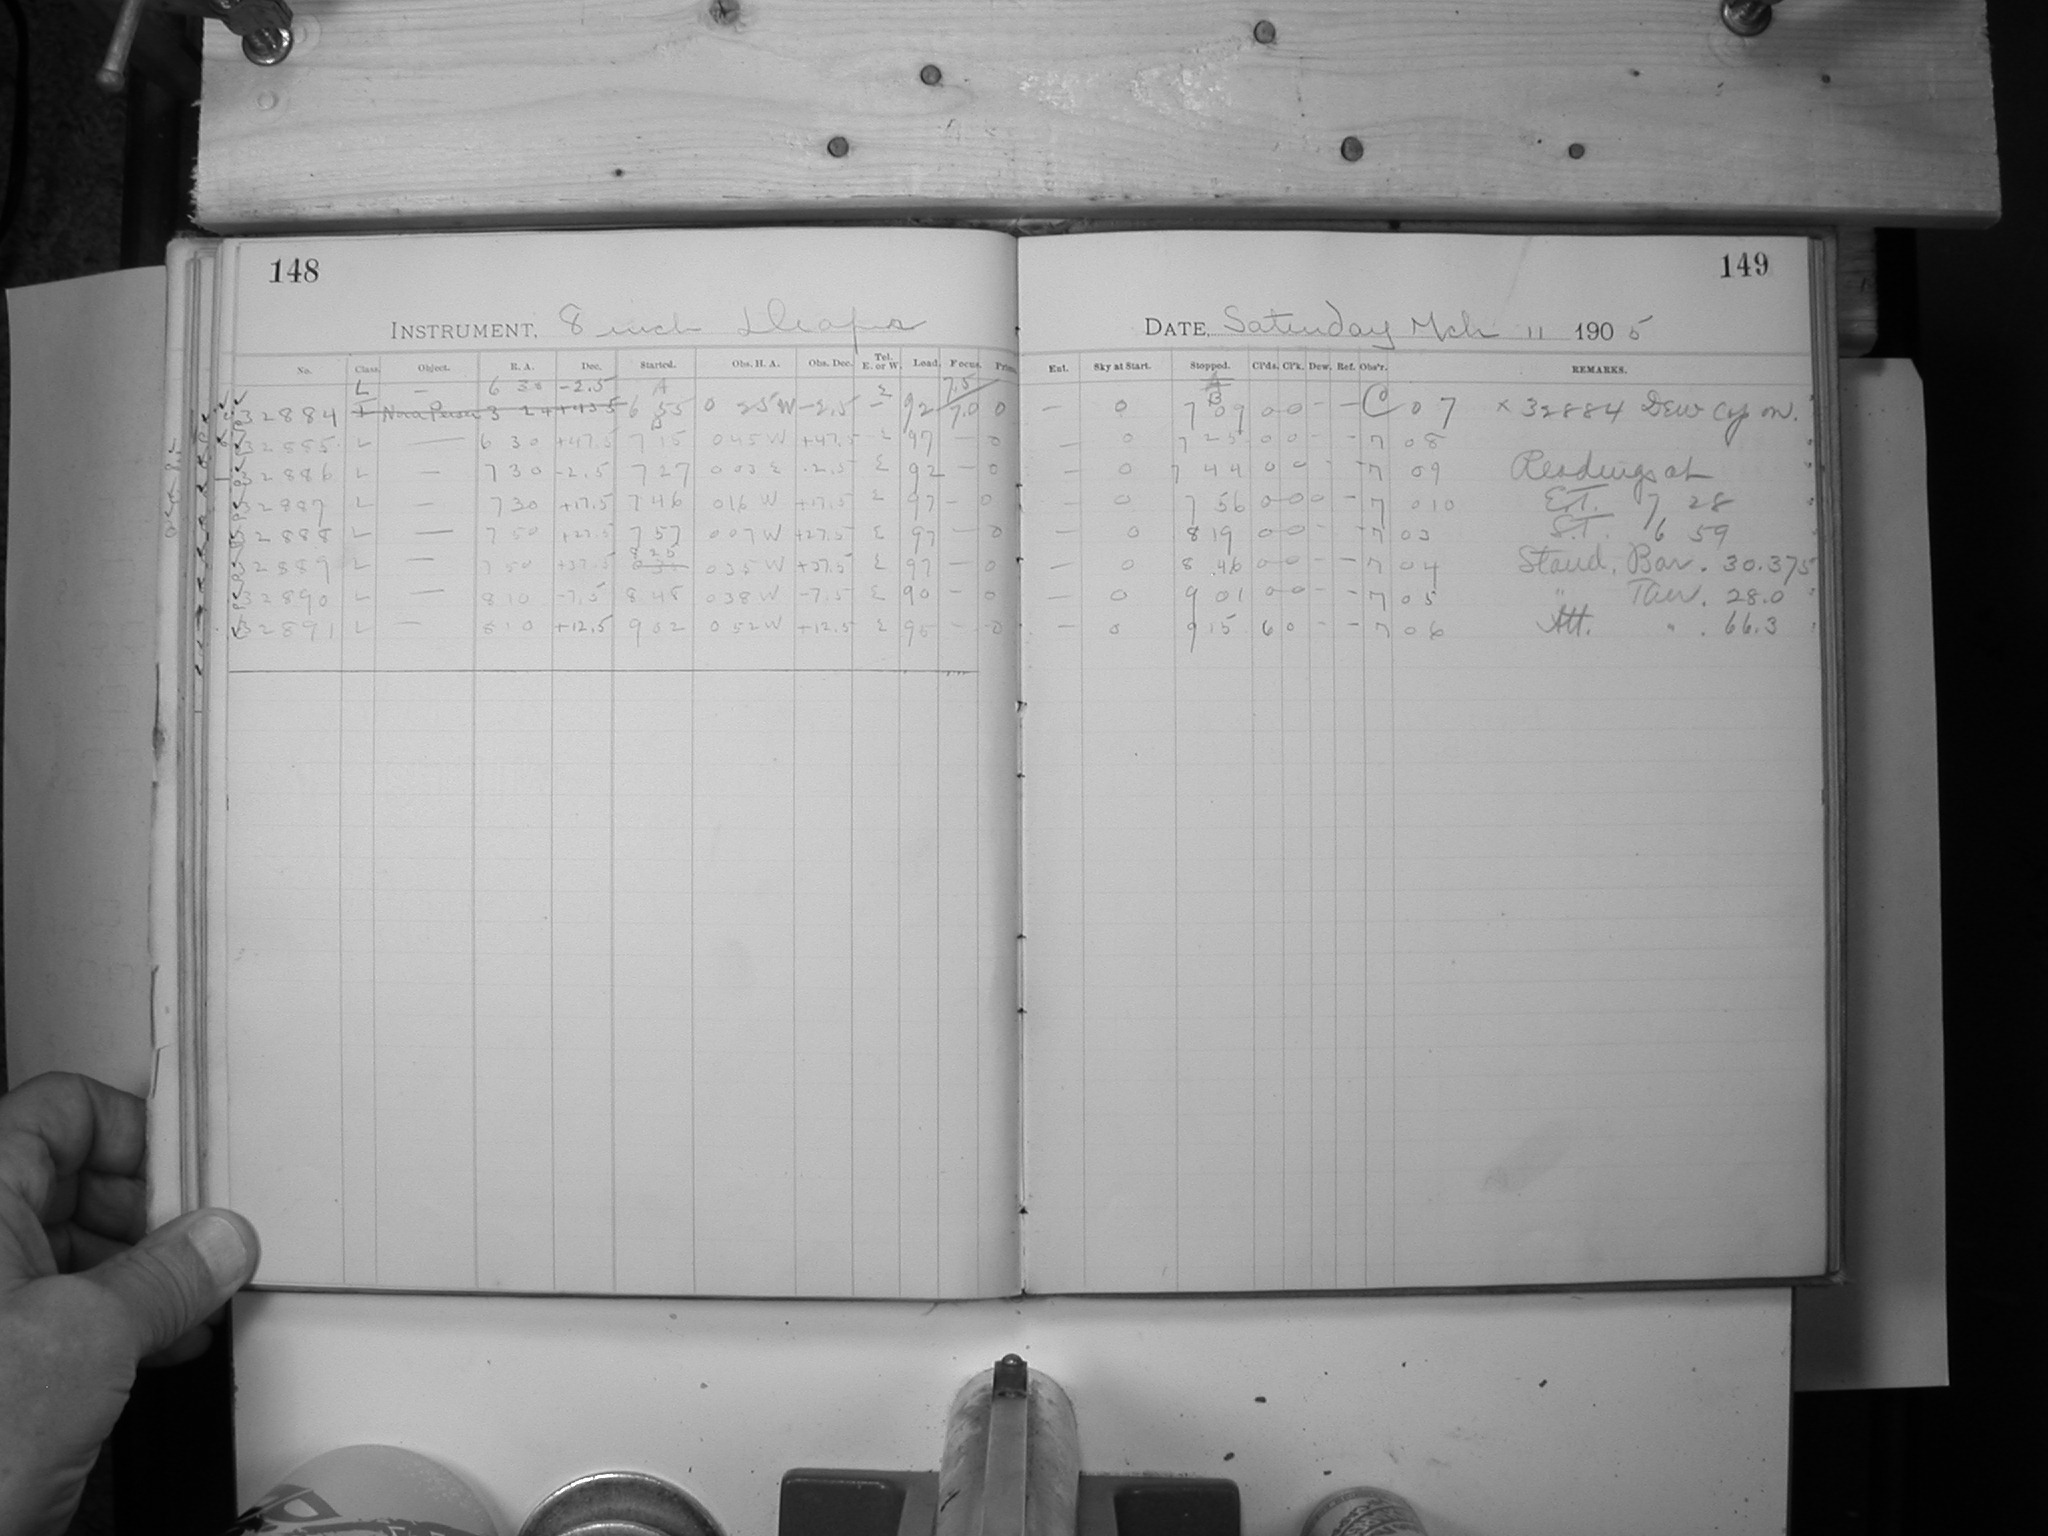 148
INSTRUMENT, 8 inch Draper
No. Class. Object. R. A. Dec. Started. Obs. H. A. Obs. Dec. Tel. E. or W. Load. Focus.
L — 6 30 -2.5 A E 7.5
32884 Nova Persei 3 24 +43.5 6 55 0 25 W -2.5 92 7.0 0
32885 L — 6 30 +47.5 7 15 0 45 W +47.5 E 97 — 0
32886 L — 7 30 -2.5 7 27 0 03 E -2.5 E 92 — 0
32887 L — 7 30 +17.5 7 46 0 16 W +17.5 E 97 — 0
32888 L — 7 50 +27.5 7 57 0 07 W +27.5 E 97 — 0
32889 L — 7 50 +37.5 8 25 0 35 W +37.5 E 97 — 0
32890 L — 8 10 -7.5 8 48 0 38 W -7.5 E 90 — 0
32891 L — 8 10 +12.5 9 02 0 52 W +12.5 E 95 — 0
149
DATE, Saturday Mch 11 1905
Ent. Sky at Start. Stopped. Cl'ds. Cl'k. Dew. Ref. Obs'r. REMARKS.
— 0 7 09 0 0 – – 0 7 × 32884 Dew Cap on.
— 0 7 25 0 0 – – 7 08
— 0 7 44 0 0 – – 7 09 Readings at
— 0 7 56 0 0 0 – 7 0 10 E.T. 7 28
— 0 8 19 0 0 – – 7 03 S.T. 6 59
— 0 8 46 0 0 – – 7 04 Stand. Bar. 30.375
— 0 9 01 0 0 – – 7 05 " 28.0
— 0 9 15 6 0 – – 7 06 Att. " . 66.3